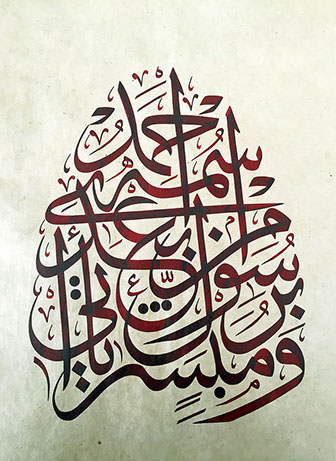 ومبشرا برسول يأتي من بعدي اسمه أحمد